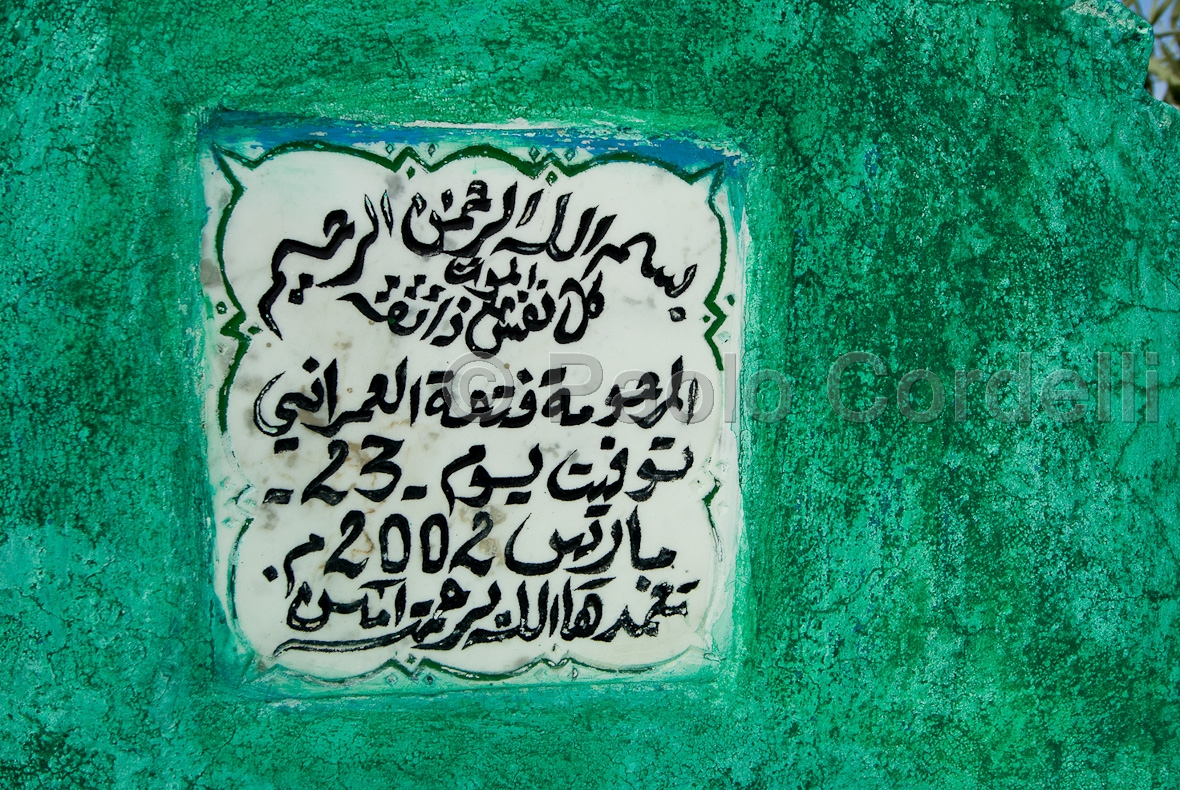 بسم الله الرحمن الرحيم
كل نفس ذائقة الموت
المرحومة فتيحة العمراني
توفيت يوم - 23 -
مارس 2002 م.
تغمدها الله برحمته آمين
© Paolo Cordelli